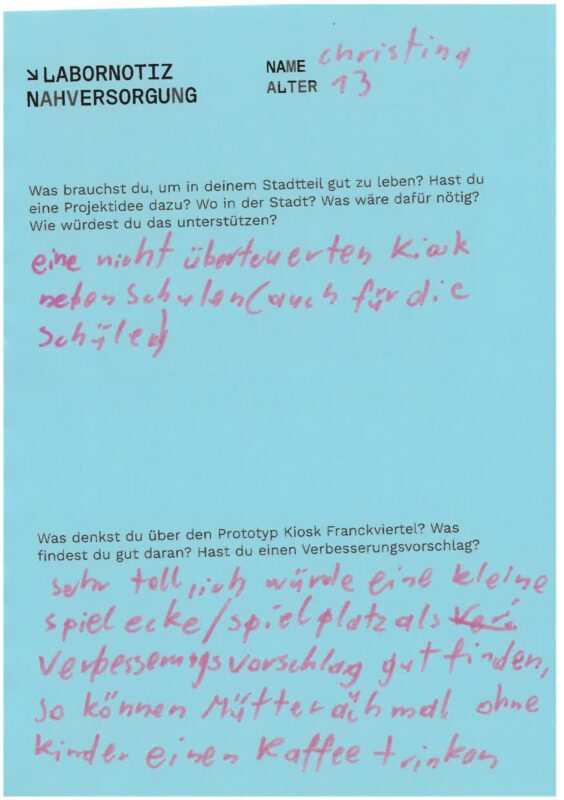 ↘ LABORNOTIZ
NAHVERSORGUNG
NAME christina
ALTER 13
Was brauchst du, um in deinem Stadtteil gut zu leben? Hast du
eine Projektidee dazu? Wo in der Stadt? Was wäre dafür nötig?
Wie würdest du das unterstützen?
eine nicht überteuerten Kiosk
neben Schulen (auch für die
Schüler)
Was denkst du über den Prototyp Kiosk Franckviertel? Was
findest du gut daran? Hast du einen Verbesserungsvorschlag?
sehr toll, ich würde eine kleine
spielecke/spielplatz als
Verbesserungsvorschlag gut finden,
so können Mütter mal ohne
kinder einen Kaffee trinken